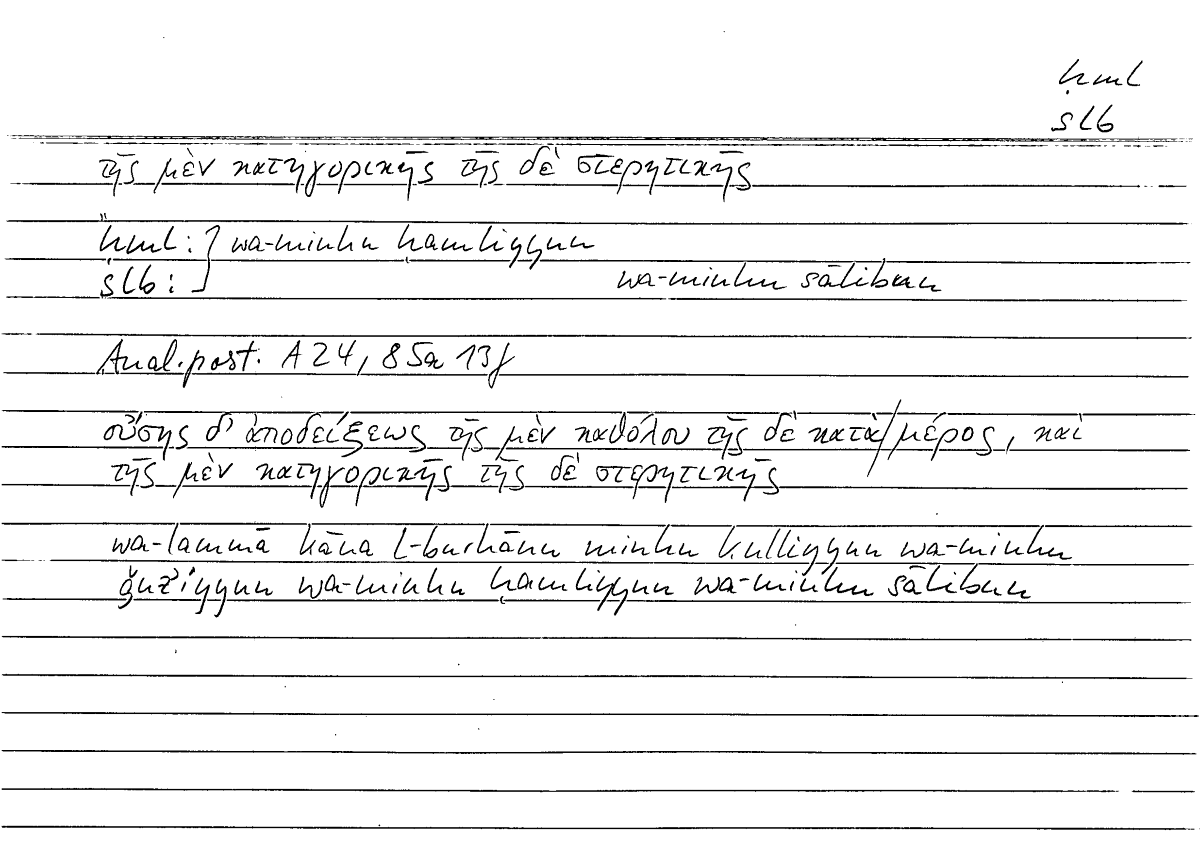 ḥml
slb
τῆς μὲν κατηγορικῆς τῆς δὲ στερητικῆς
ḥml: } wa-minhu ḥamliyyun
slb: } wa-minhu sālibun
Anal. post. A 24, 85a 13f
οὔσης δ' ἀποδείξεως τῆς μὲν καθόλου τῆς δὲ κατὰ/μέρος, καὶ
τῆς μὲν κατηγορικῆς τῆς δὲ στερητικῆς
wa-lammā kāna l-burhānu minhu kulliyyun wa-minhu
ǧuzʾiyyun wa-minhu ḥamliyyun wa-minhu sālibun